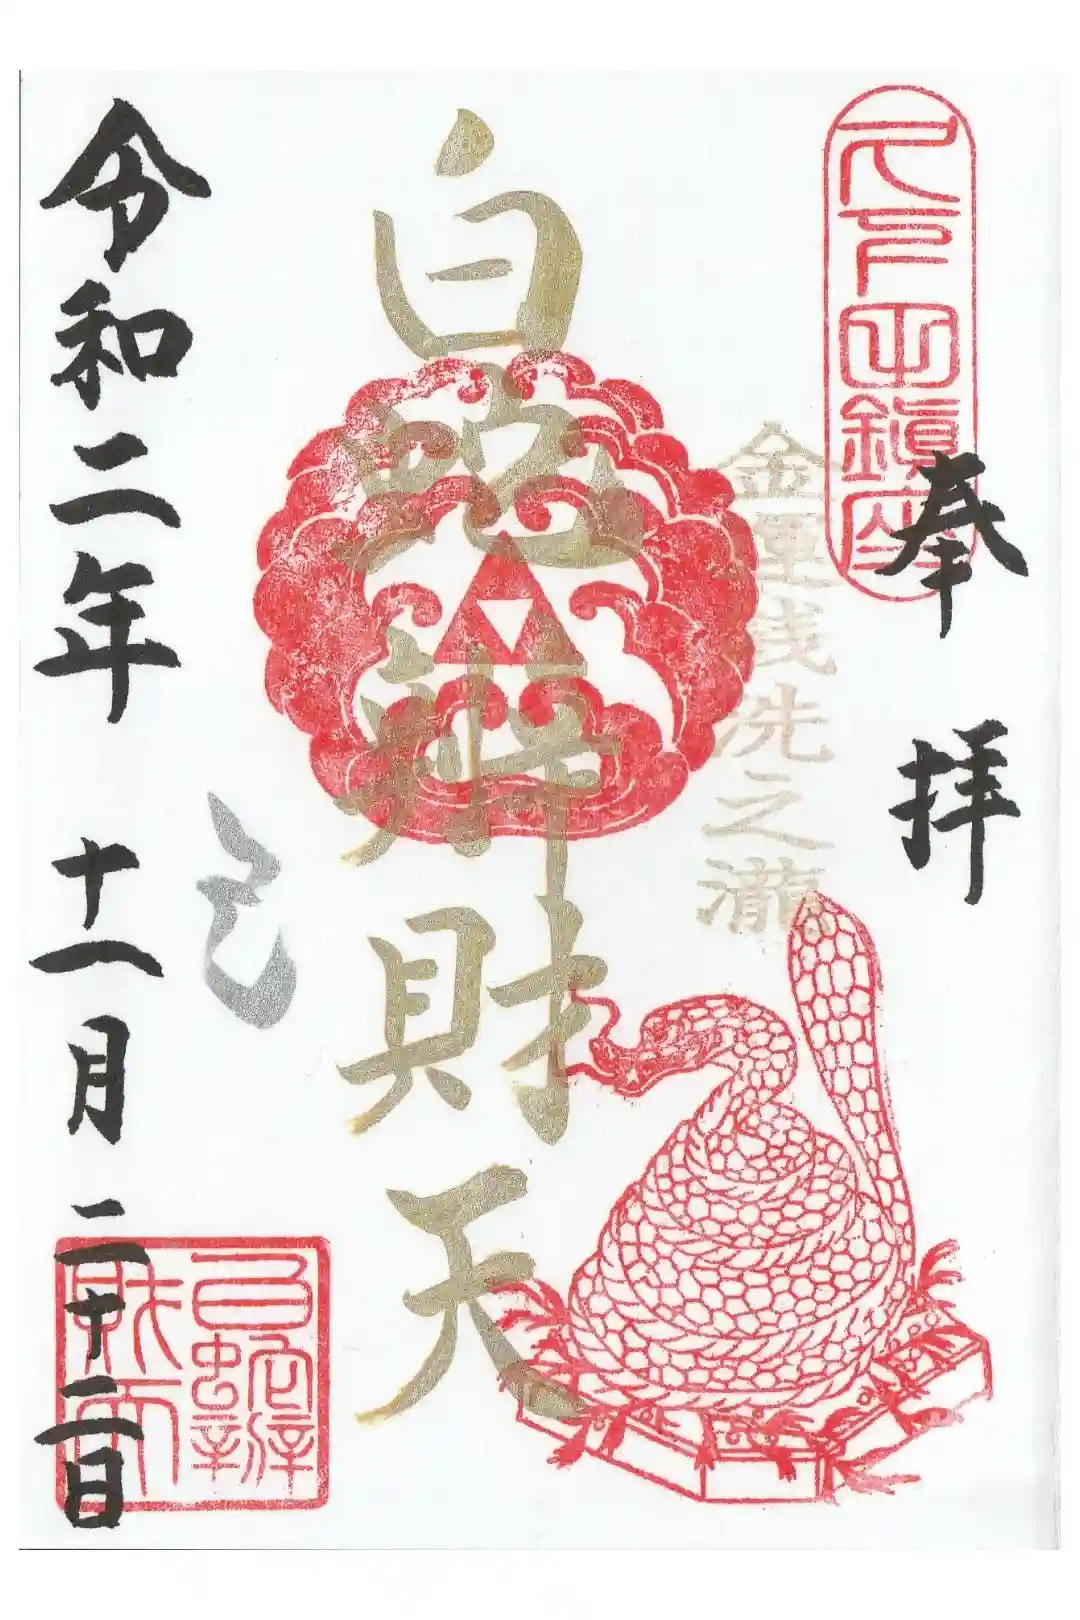 久下田鎮座
奉拝
金運銭洗之瀧
白蛇辨財天
巳
令和二年十一月二十二日
白蛇辨財天